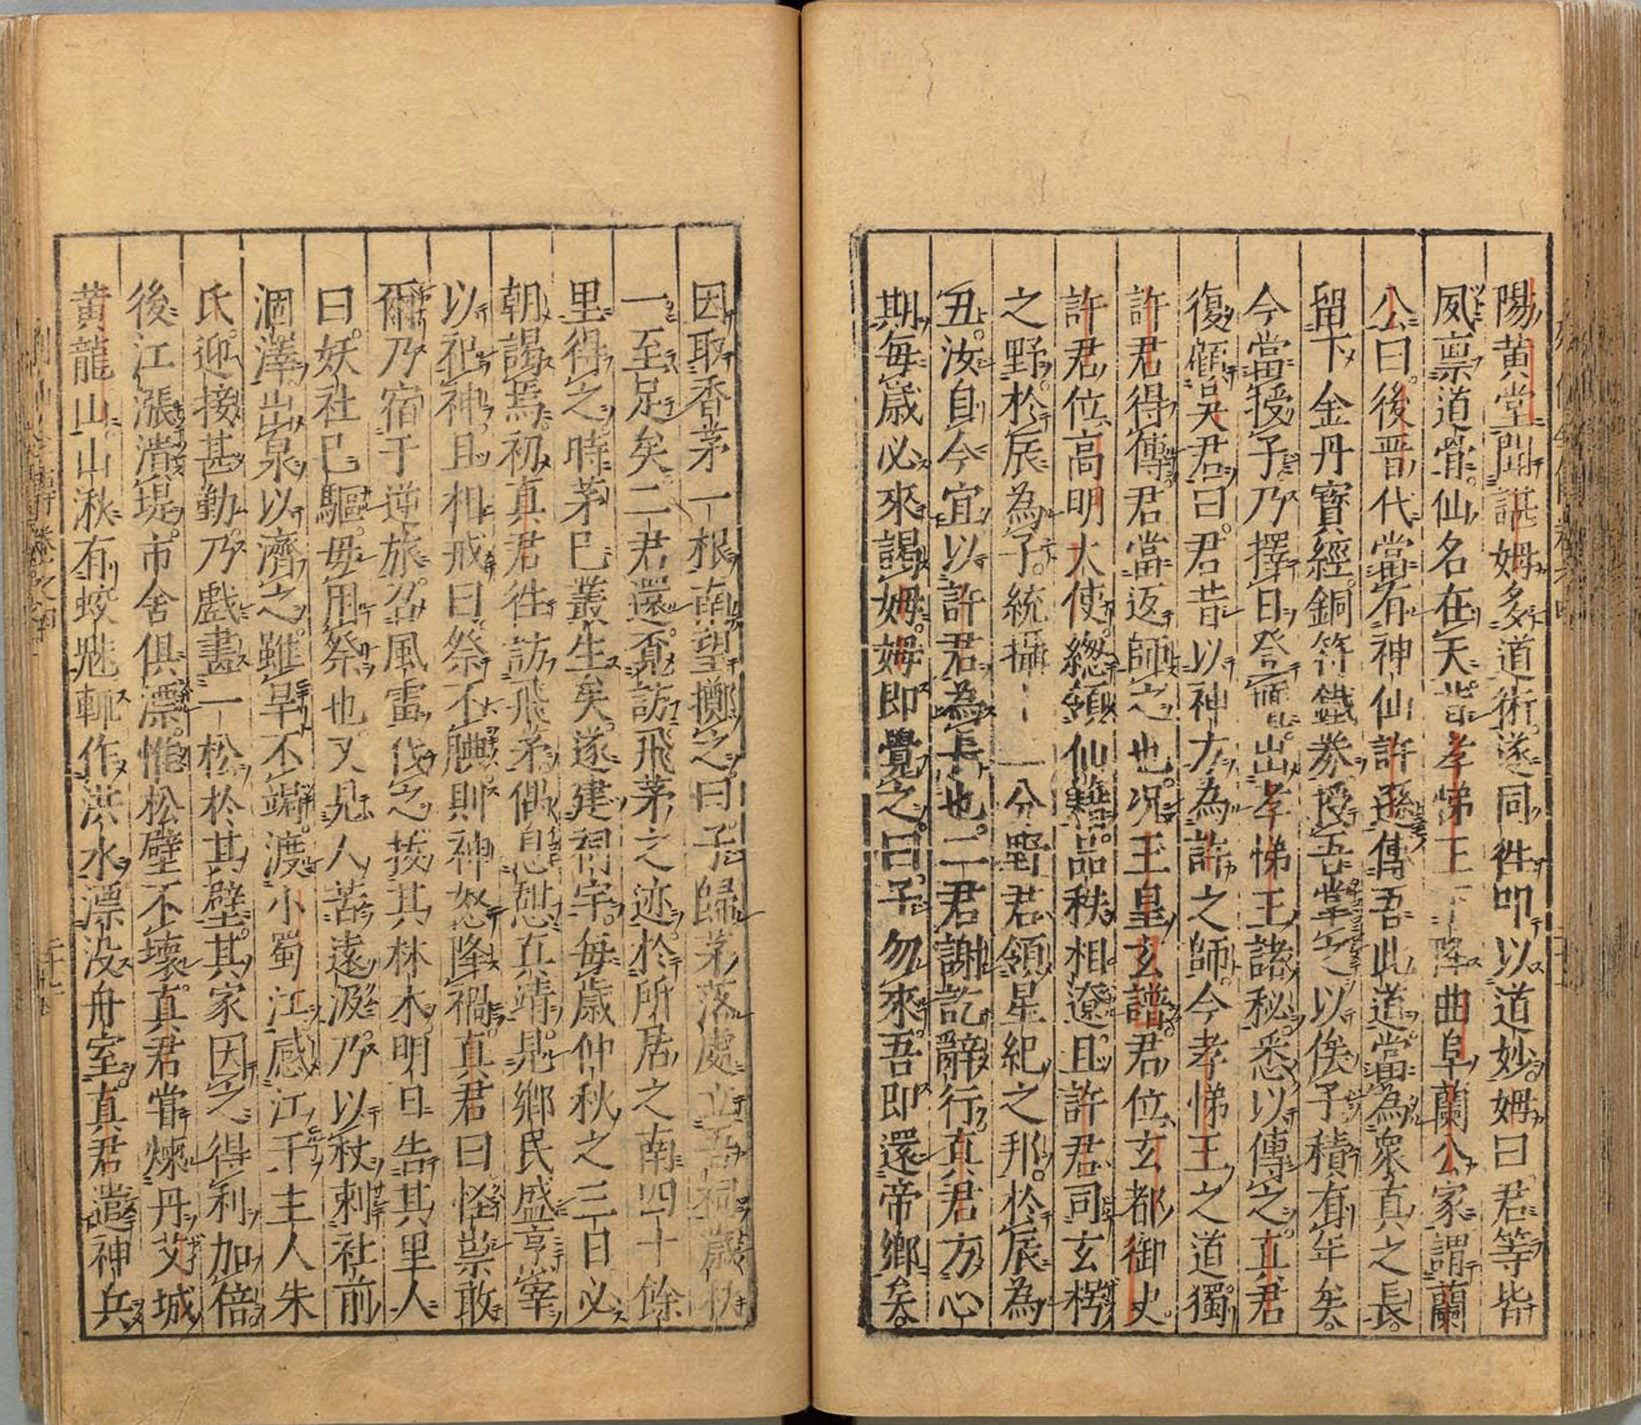 陽黃堂聞諶姆多道術遂同徃叩以道妙姆曰君等皆
夙禀道骨仙名在天昔孝悌王下降曲阜蘭公家謂蘭
公曰後晋代當有神仙許遜傳吾此道當為衆真之長
留下金丹寳經銅符鐵券授吾掌之以俟子積有年矣
今當授子乃擇日登壇出孝悌王諸秘悉以傳之真君
復顧吳君曰君昔以神方為許之師今孝悌王之道獨
許君得傳君當返師之也况玉皇玄譜君位玄都御史
許君位高明大使緫領仙籍品秩相遼且許君司玄枵
之野於辰為子統攝 一分野君領星紀之邦於辰為
丑汝自今宜以許君為長也二君謝訖辭行真君方心
期毎歲必來謁姆姆即覺之曰子勿來吾即還帝鄉矣
因取香茅一根南望擲之曰子歸茅落處立吾祠歲秋
一至足矣二君還覔訪飛茅之迹於所居之南四十餘
里得之時茅已叢生矣遂建祠宇毎歲仲秋之三日必
朝謁焉初真君徃訪飛茅偶息憇真靖見鄉民盛烹宰
以祀神且相戒曰祭不腆則神怒降禍真君曰怪祟敢
爾乃宿于逆旅召風雷伐之拔其林木明日告其里人
曰妖社已驅毋用祭也又見人苦遠汲乃以杖刺社前
涸澤出泉以濟之雖旱不竭渡小蜀江感江干主人朱
氏迎接甚勤乃戲畫一松於其壁其家因之得利加倍
後江漲潰堤市舍俱漂惟松壁不壞真君嘗煉丹艾城
黃龍山山湫有蛟魅輒作洪水漂没舟室真君遣神兵